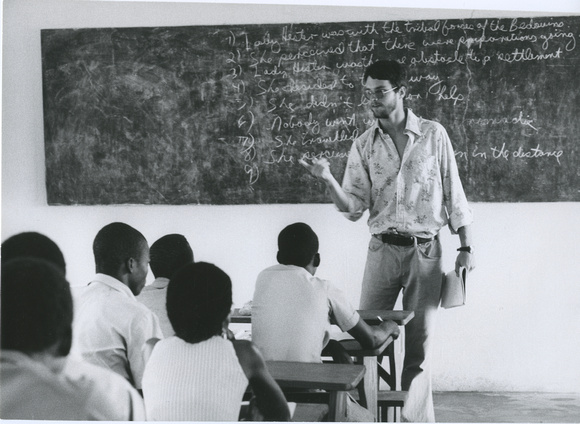 1) Lady Hester was with the tribal forces of the Bedouins
2) She perceived that there were preparations going
3) Lady Hester was an obstacle to a settlement
4) She decided to way
5) She didn't for help
6) Nobody went
7) She travelled
8) She perceived in the distance
9)